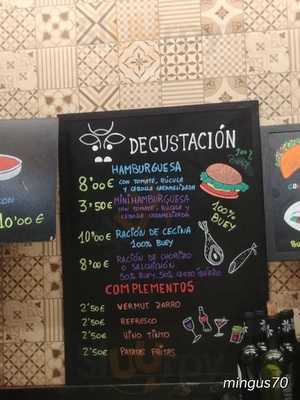 DEGUSTACIÓN
HAMBURGUESA
8'00€ CON TOMATE, RÚCULA
Y CEBOLLA CARAMELIZADA
3'50 MINI HAMBURGUESA
CON TOMATE, RÚCULA Y
CEBOLLA CARAMELIZADA
100%
BUEY
10'00€ RACIÓN DE CECINA
100% BUEY
8'00€ RACIÓN DE CHORIZO
O SALCHICHÓN
50% BUEY, 50% CERDO IBÉRICO
COMPLEMENTOS
2'50€ VERMUT ZARRO
2'50€ REFRESCO
2'50€ VINO TINTO
2'50€ PATATAS FRITAS
10'00€
mingus70